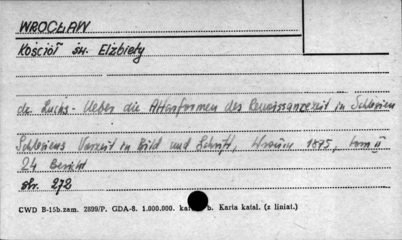 WROCŁAW
Kościół św. Elżbiety
dr. Luchs - Ueber die Altarformen des Renaissancezeit in Schlesien
Schlesiens Vorzeit in Bild und Schrift, 1875, tom II
24 Bericht
str. 272
CWD B-15b.zam. 2899/P. GDA-8. 1.000.000. b. Karta katal. (z liniat.)